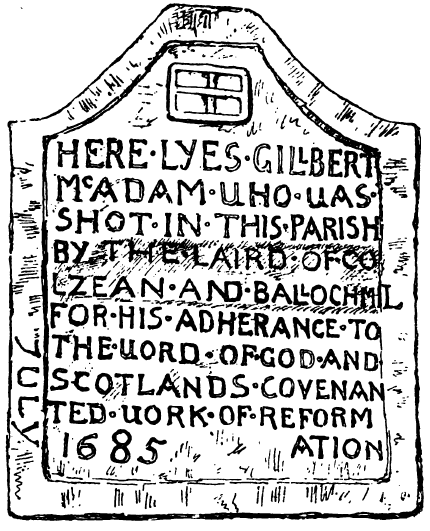 HERE·LYES·GILLBERT
McADAM·UHO·UAS·
SHOT·IN·THIS·PARISH
BY·THE·LAIRD·OF·CO
LZEAN·AND·BALLOCHMIL
FOR·HIS·ADHERANCE·TO
THE·UORD·OF·GOD·AND
SCOTLANDS·COVENAN
TED·UORK·OF·REFORM
1685 ATION
JULY